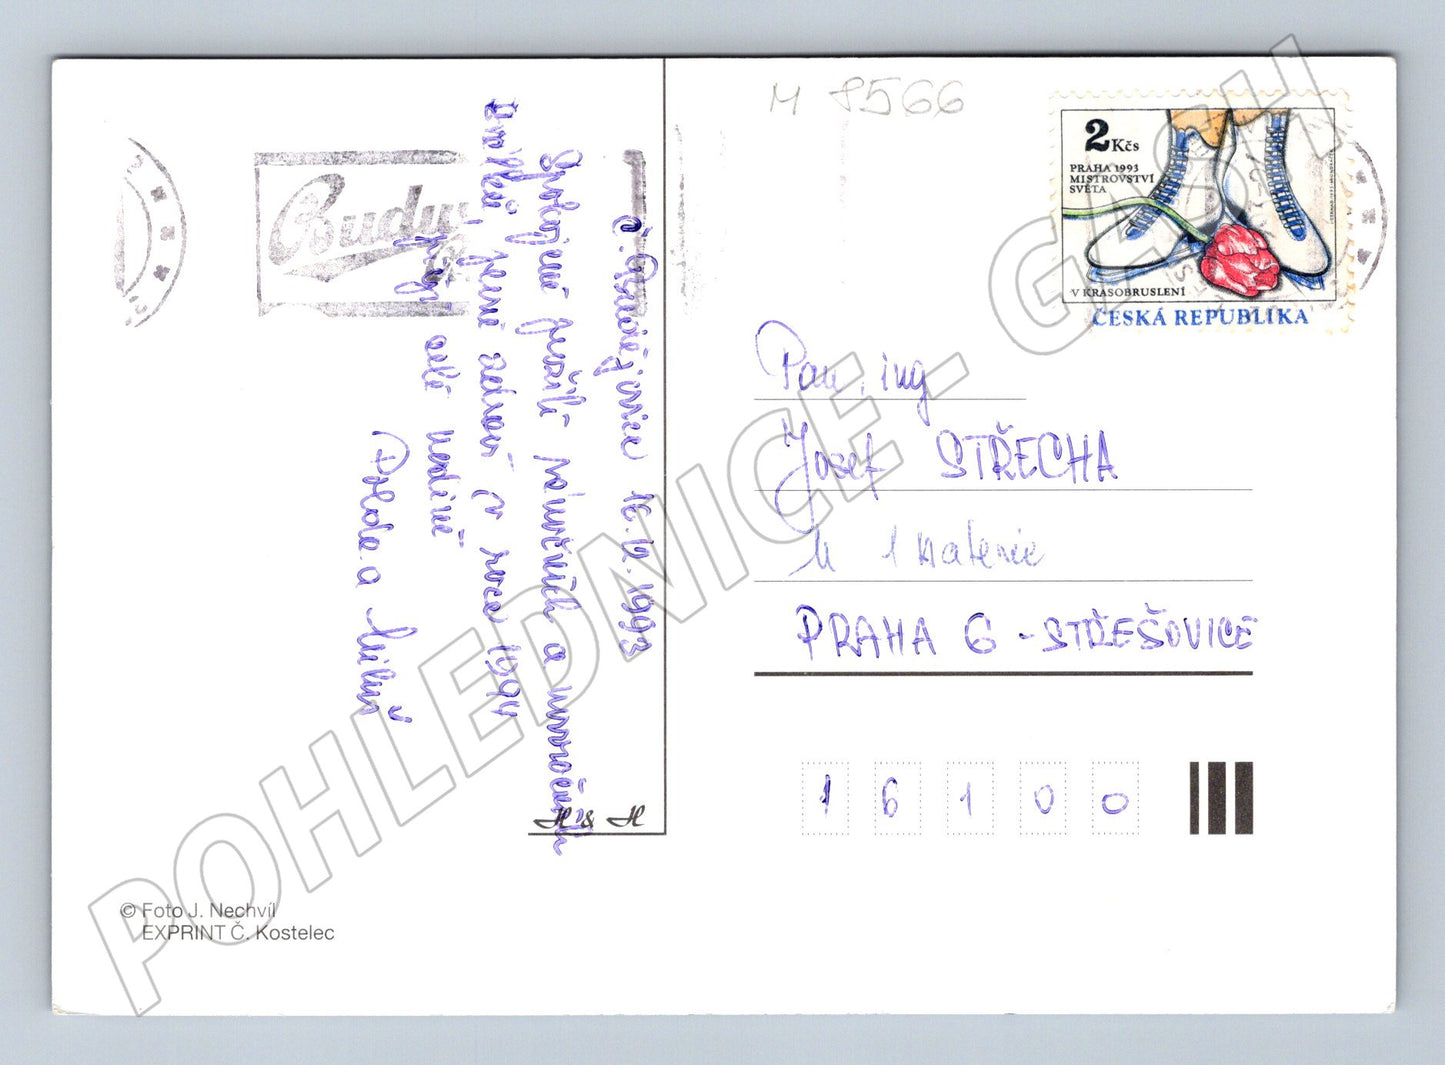 M 8566
2 Kčs
PRAHA 1993
MISTROVSTVÍ
SVĚTA
V KRASOBRUSLENÍ
ČESKÁ REPUBLIKA
Budv
Č. Budějovice 16.12.1993
Spokojené prožití vánočních a novoročních
pevné zdraví v roce 1994
přejí celé rodině
a
Pan, ing
Josef STŘECHA
PRAHA 6 - STŘEŠOVICE
1 6 1 0 0
H & H
© Foto J. Nechvíl
EXPRINT Č. Kostelec
POHLEDNICE - GASH